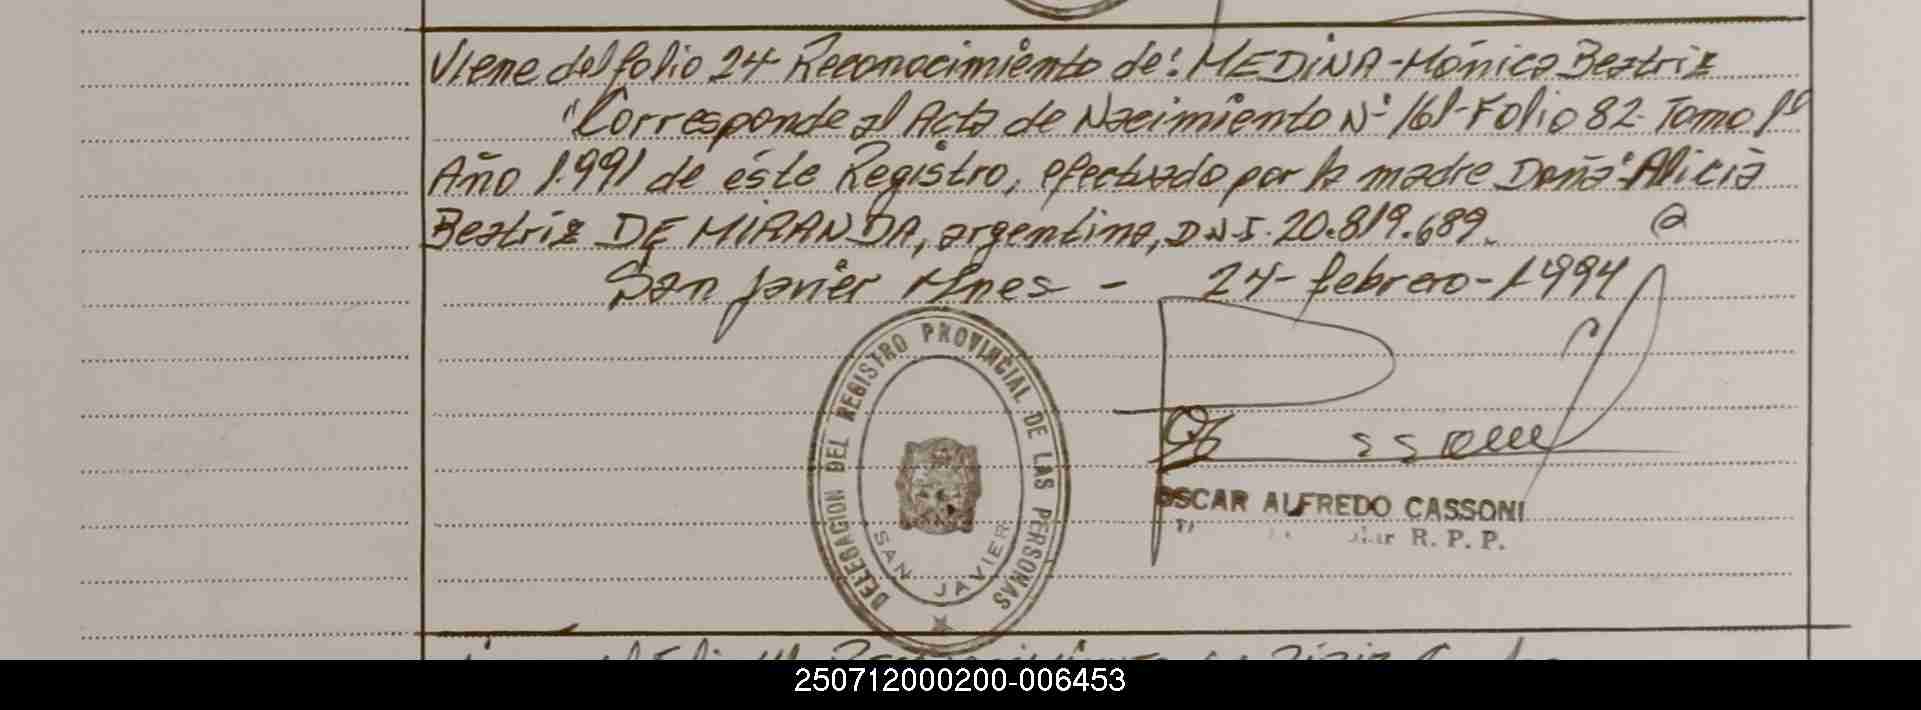 Viene del folio 24 Reconocimiento de: MEDINA-Mónica Beatriz
"Corresponde al Acta de Nacimiento Nº 161-Folio 82. Tomo 1º
Año 1.991 de éste Registro, efectuado por la madre Doña: Alicia
Beatriz DE MIRANDA, argentina, D.N.I. 20.819.689.
San Javier Mnes - 24-febrero-1.994
DELEGACION DEL REGISTRO PROVINCIAL DE LAS PERSONAS
SAN JAVIER
OSCAR ALFREDO CASSONI
R. P. P.
250712000200-006453